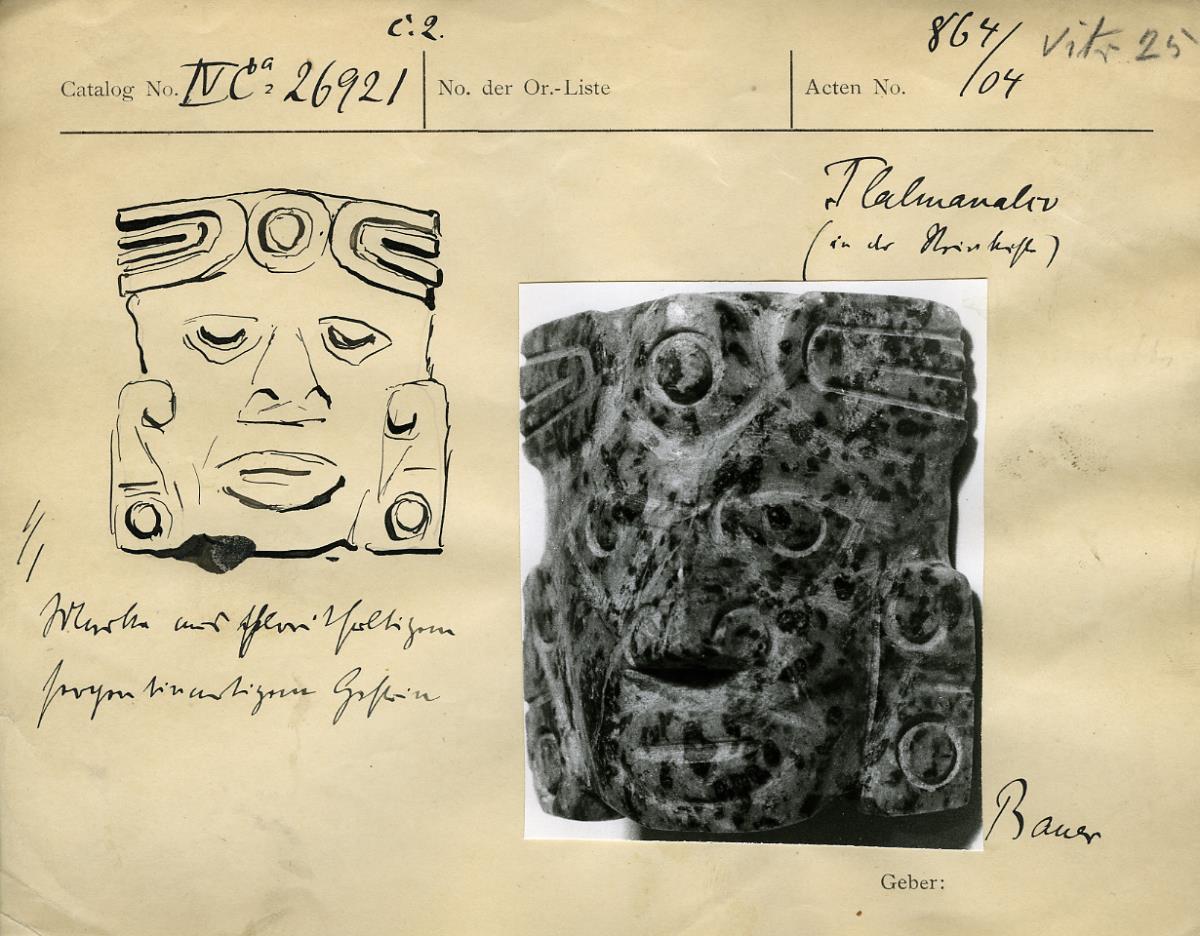 C. 2.
864/04 Vitr. 25
Catalog No. IV Ca 26921
No. der Or.-Liste
Acten No.
Tlalmanalco
(in der Steinkiste)
1/1
Maske aus chlorithaltigem
serpentinartigem Gestein
Bauer
Geber: